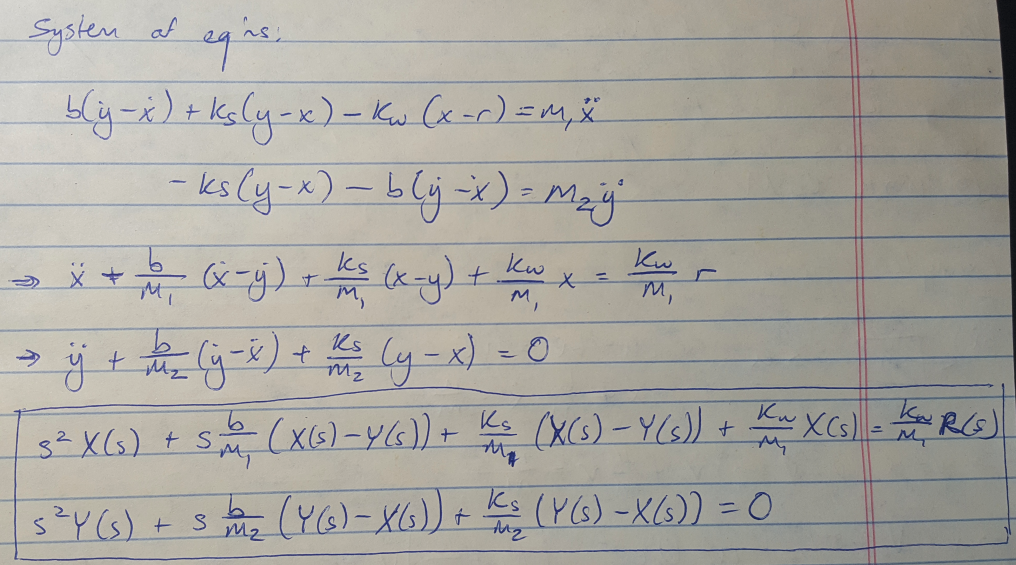 System of eq'ns:
b(ẏ-ẋ) + ks(y-x) - Kw (x-r) = m₁ẍ
- ks(y-x) - b(ẏ-ẋ) = m₂ÿ
⇒ ẍ + b/m₁ (ẋ-ẏ) + ks/m₁ (x-y) + kw/m₁ x = kw/m₁ r
⇒ ÿ + b/m₂ (ẏ-ẋ) + ks/m₂ (y-x) = 0
s² X(s) + s b/m₁ (X(s) - Y(s)) + ks/m₁ (X(s) - Y(s)) + kw/m₁ X(s) = kw/m₁ R(s)
s² Y(s) + s b/m₂ (Y(s) - X(s)) + ks/m₂ (Y(s) - X(s)) = 0